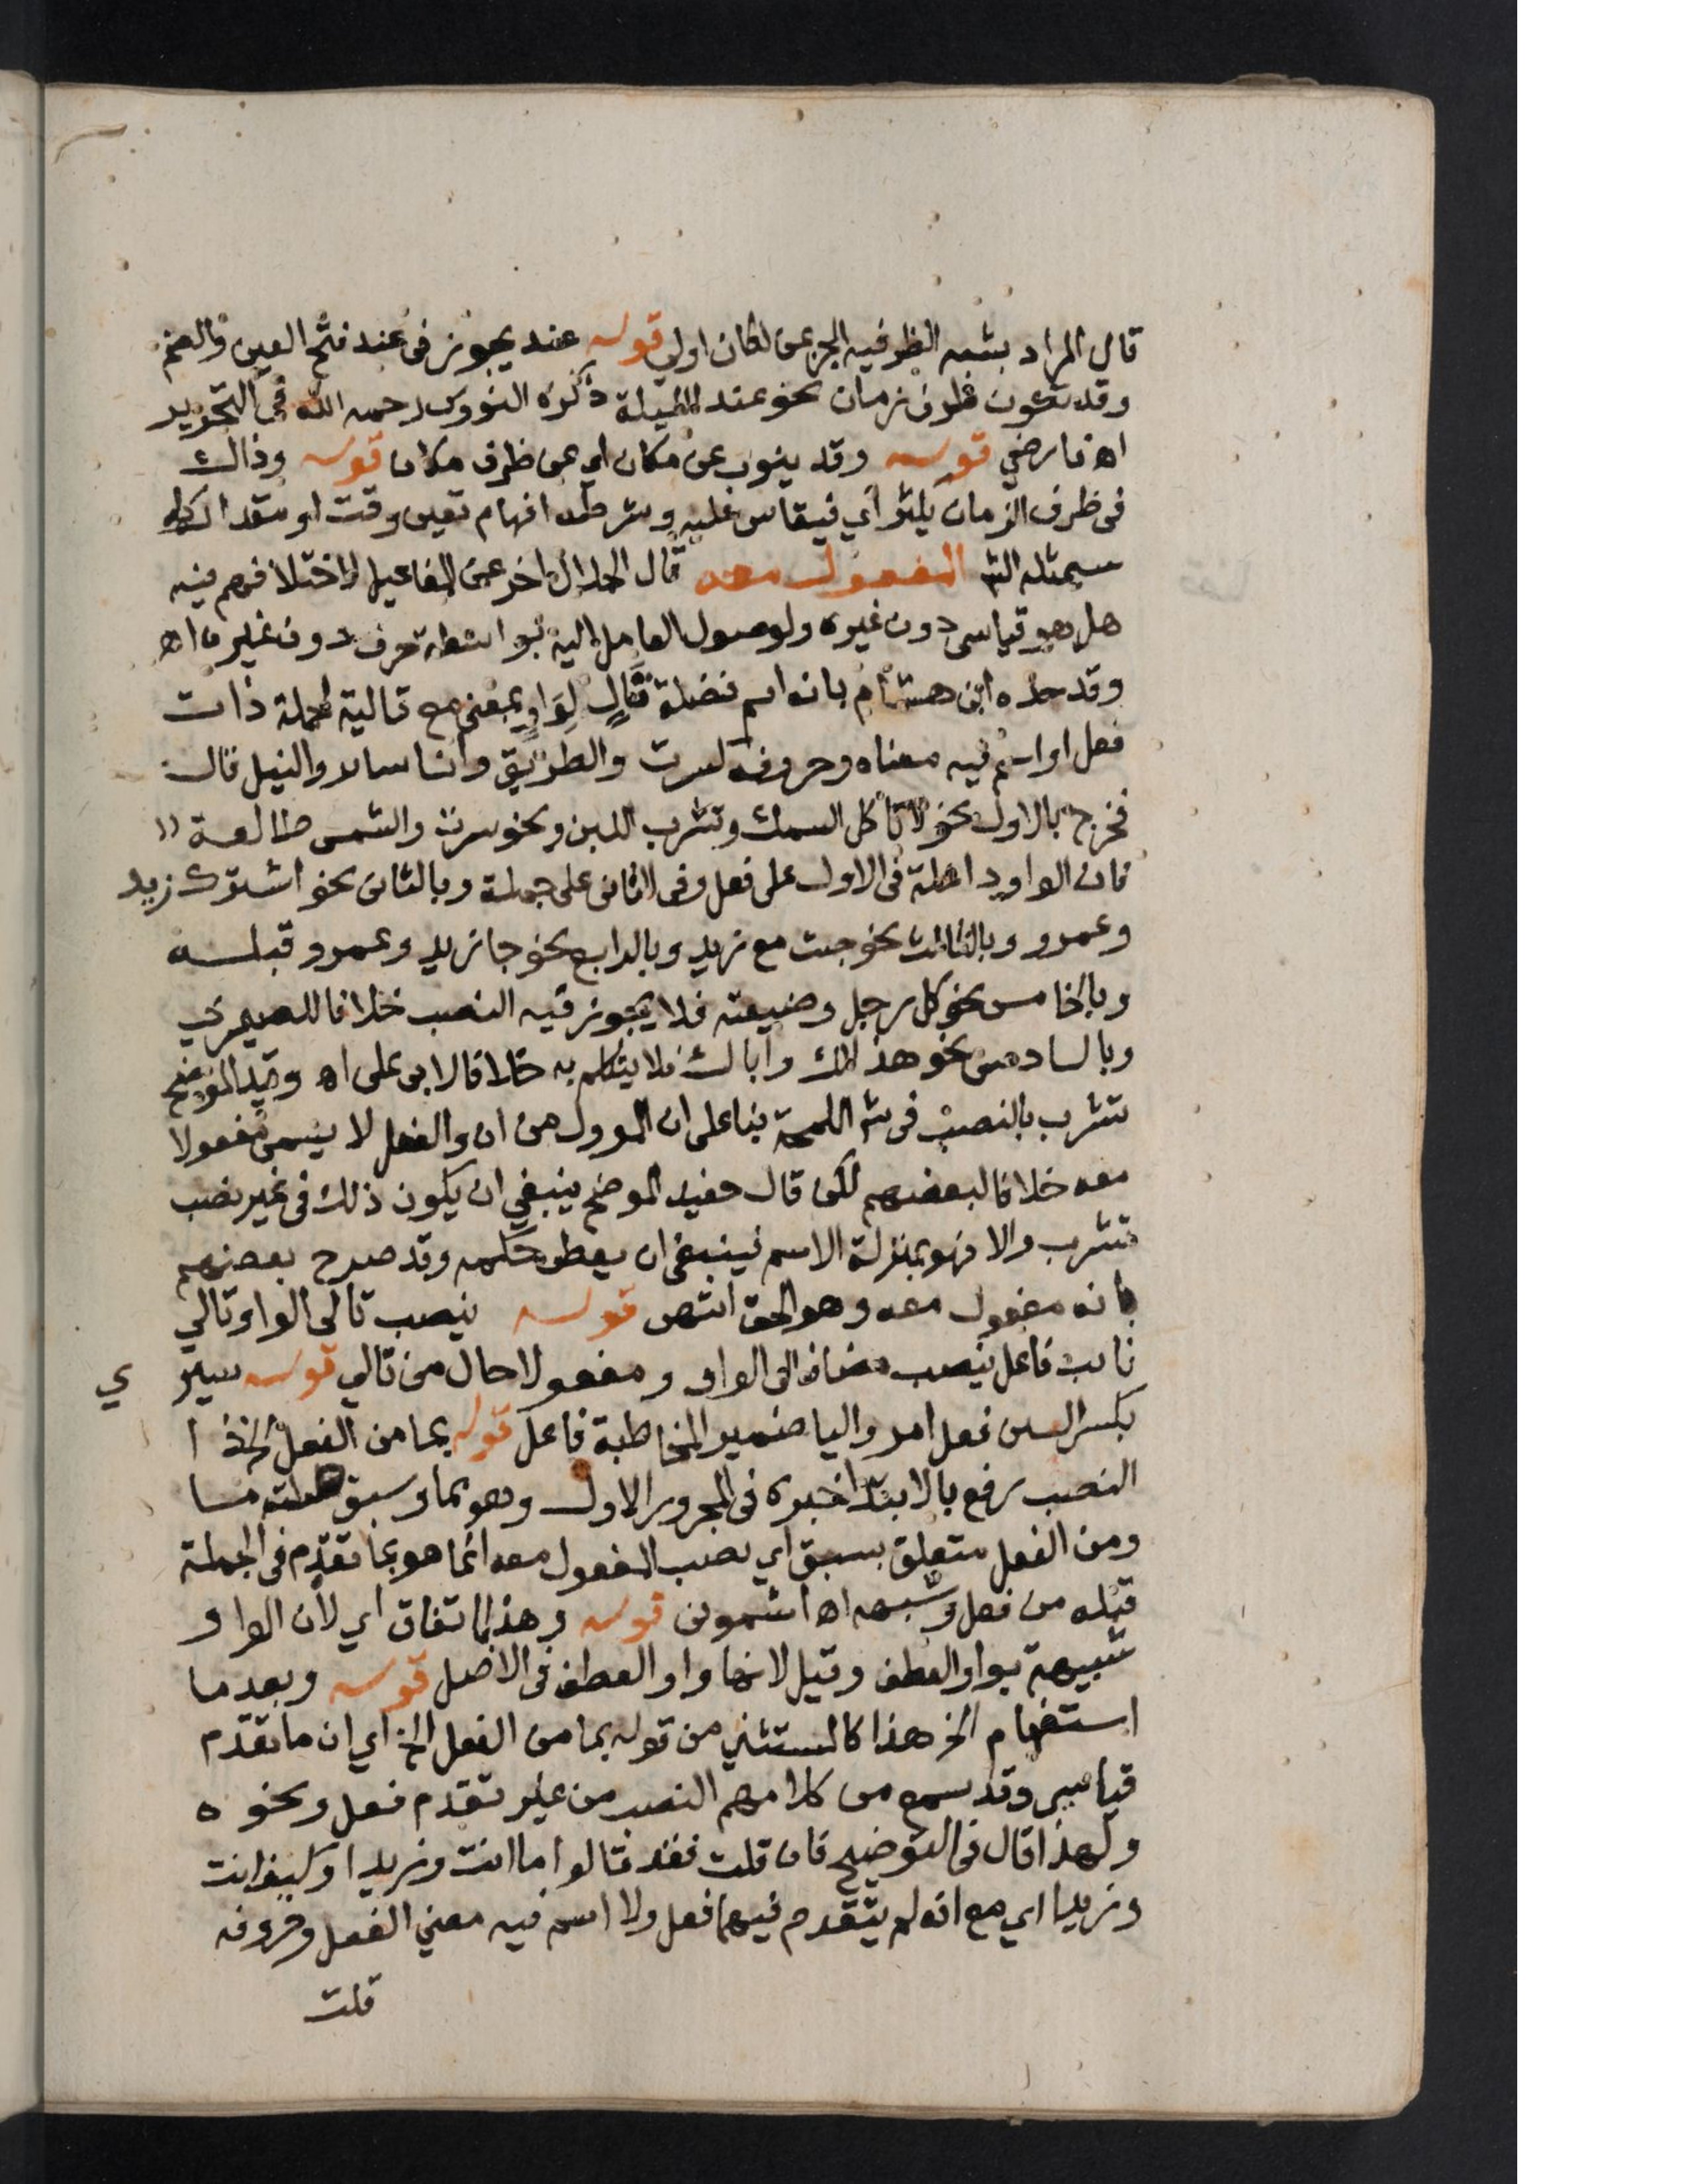 قال المراد بشبه الظرفيه الجر بمن لكان اولي قوله عند يجوز فى عند فتح العين والضم
وقد تكون ظرف زمان نحو عند الليلة ذكره النووى رحمه الله فى التحرير
اه فارضي قوله وقد ينوب عن مكان اي عن ظرف مكان قوله وذاك
فى ظرف الزمان يكثر اي فيقاس عليه وشرطه افهام تعين وقت او مقدار كما
سيمثله الش المفعول معه قال الجلال اخر عن المفاعيل لاختلافهم فيه
هل هو قياسى دون غيره ولوصول العامل اليه بواسطة حرف دون غيره اه
وقد حده ابن هشام بانه اسم فضلة تالٍ لواوٍ بمعنى مع تالية لجملة ذات
فعل او اسم فيه معناه وحروفه كسرت والطريق وانا ساير والنيل قال
فخرج بالاول نحو لا تأكل السمك وتشرب اللبن ونحو سرت والشمس طالعة
فان الواو داخلة فى الاول على فعل وفى الثانى على جملة وبالثانى نحو اشترك زيد
وعمرو وبالثالث نحو جيت مع زيد وبالرابع نحو جا زيد وعمرو قبله
وبالخامس نحو كل رجل وضيعته فلا يجوز فيه النصب خلافا للصيمري
وبالسادس نحو هذا لك واباك فلا يتكلم به خلافا لابى على اه وقيد الموضح
تشرب بالنصب فى ش اللمحة بنا على ان الموول من ان والفعل لا يسمى مفعولا
معه خلافا لبعضهم لكن قال حفيد الموضح ينبغي ان يكون ذلك فى غير نصب
تشرب والا فهو بمنزلة الاسم فينبغى ان يعطى حكمه وقد صرح بعضهم
بانه مفعول معه وهو الحق انتهى قوله ينصب تالى الواو تالي
نايب فاعل ينصب مضاف الى الواو ومفعولا حال من تالي قوله سير ي
بكسر السين فعل امر واليا ضمير المخاطبة فاعل قوله بما من الفعل الخ ذا
النصب رفع بالابتدا خبره فى المجرور الاول وهو بما وسبق صلته ما
ومن الفعل متعلق بسبق اي نصب المفعول معه انما هو بما تقدم فى الجملة
قبله من فعل وشبهه اه اشمونى قوله وهذا باتفاق اي لأن الواو
شبيهة بواو العطف وقيل لانها واو العطف فى الاصل قوله وبعد ما
استفهام الخ هذا كالمستثني من قوله بما من الفعل الخ اي ان ما تقدم
قياسى وقد سمع من كلامهم النصب من غير تقدم فعل ونحوه
ولهذا قال فى التوضيح فان قلت فقد قالوا ما انت وزيدا وكيف انت
وزيدا اي مع انه لم يتقدم فيهما فعل ولا اسم فيه معني الفعل وحروفه
قلت